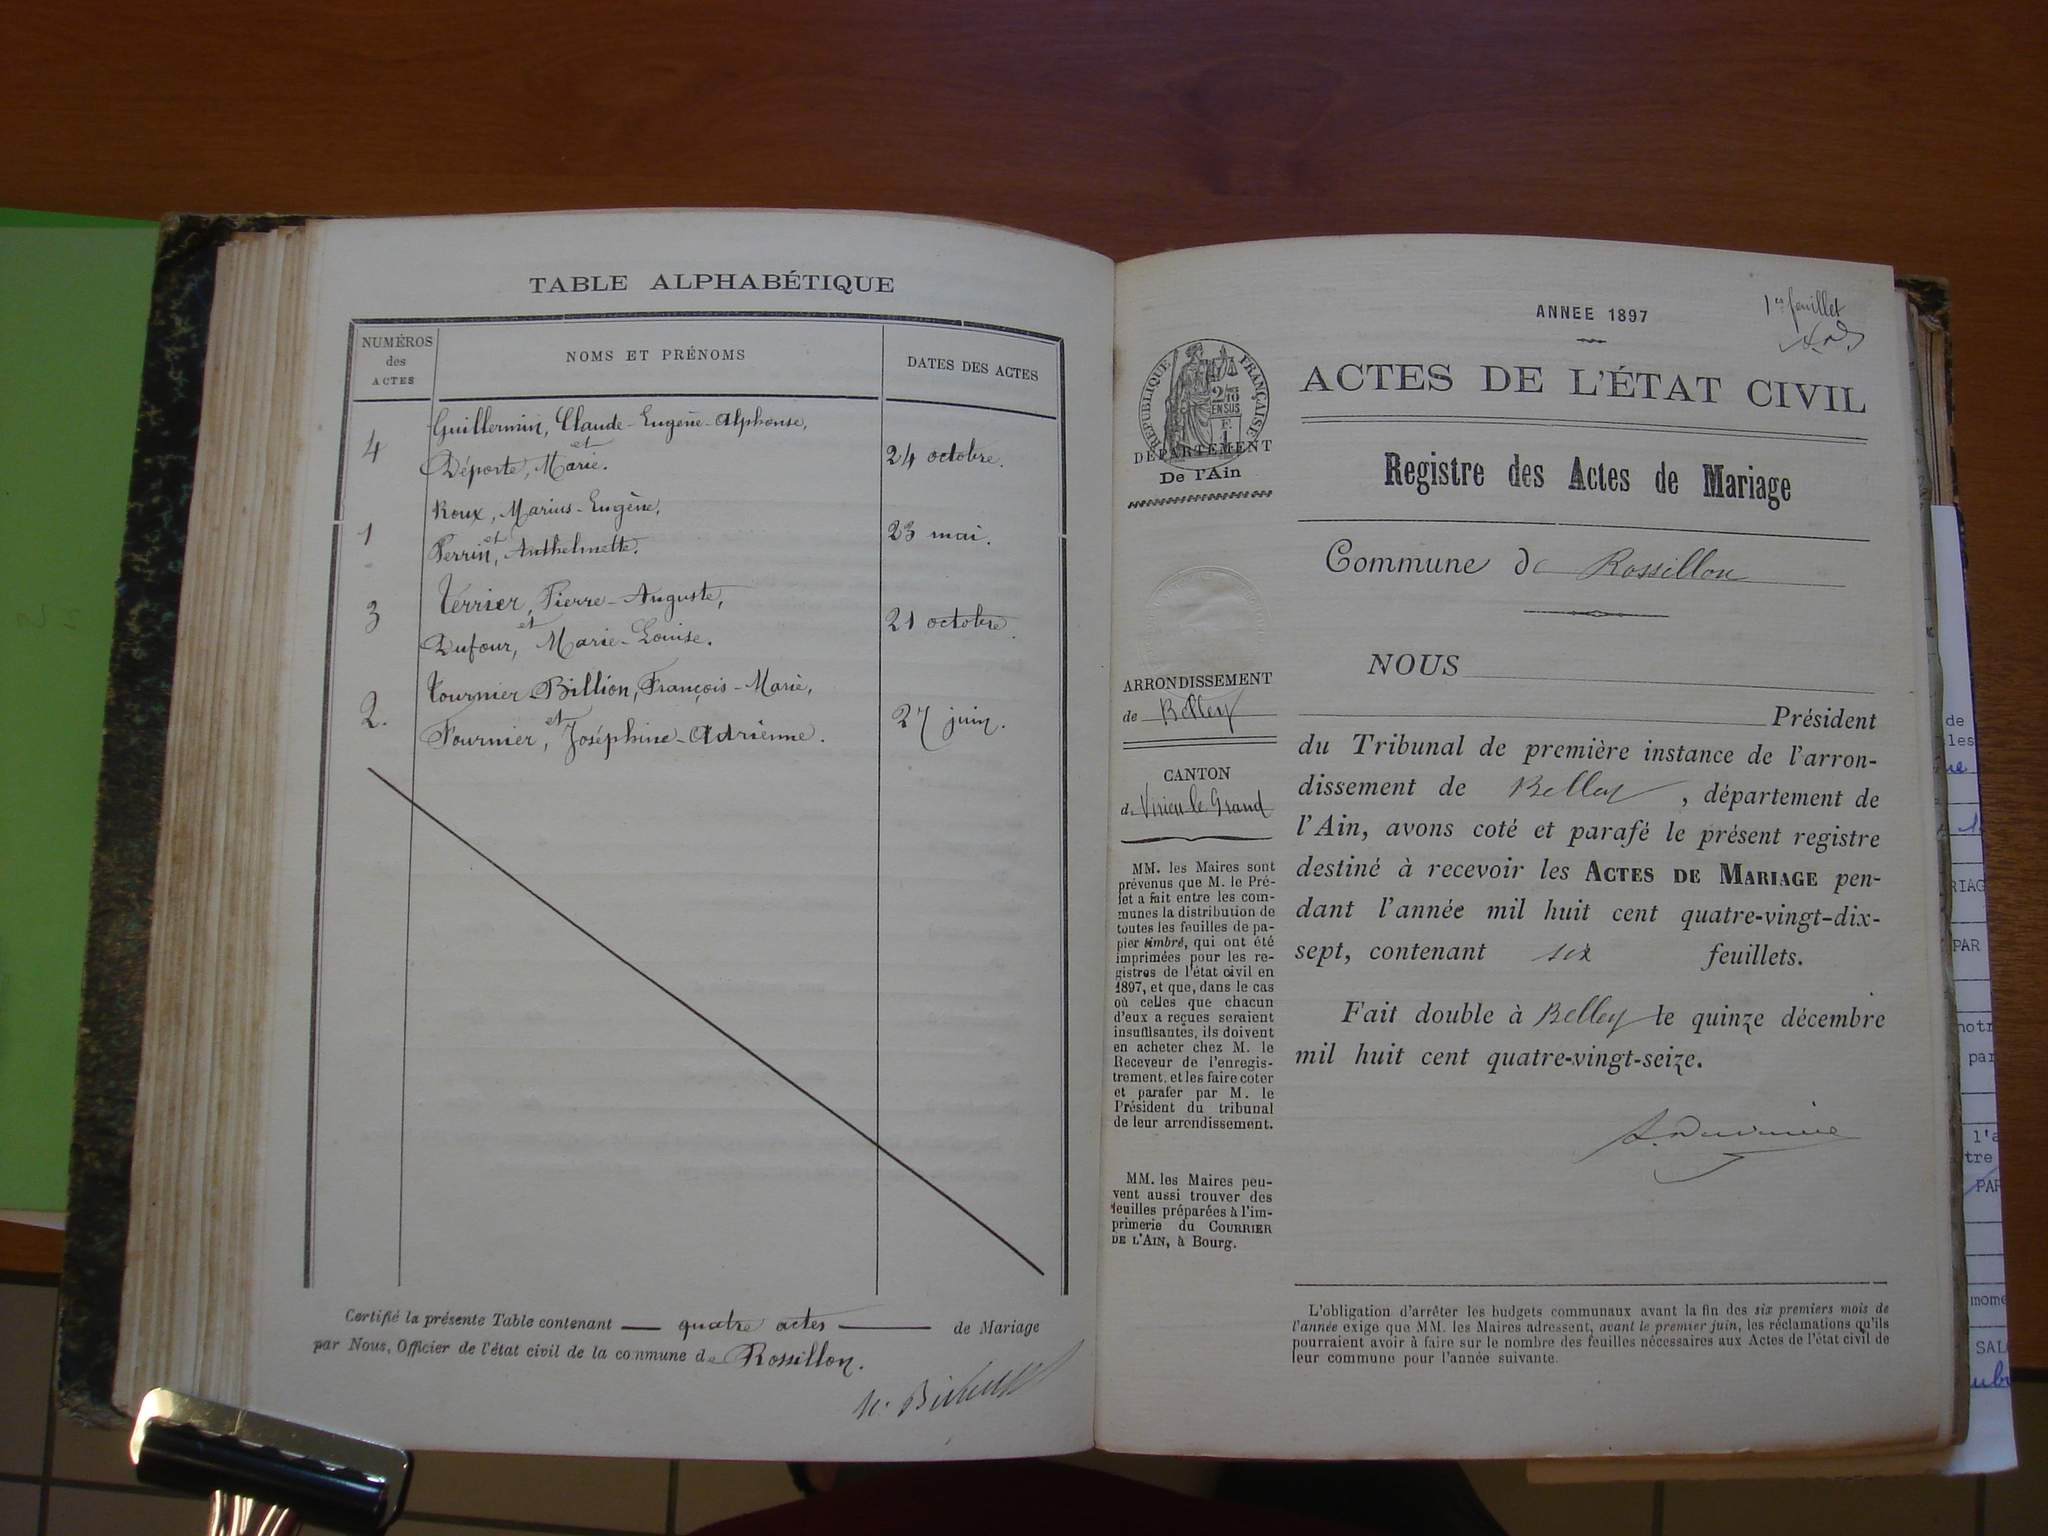 TABLE ALPHABÉTIQUE
NUMÉROS
des
ACTES
NOMS ET PRÉNOMS
DATES DES ACTES
Guillermin, Claude-Eugène-Alphonse,
4
et
24 octobre.
Déporte, Marie.
Roux, Marius-Eugène,
1
et
23 mai.
Perrin, Anthelmette.
Terrier, Pierre-Auguste,
3
et
21 octobre.
Dufour, Marie-Louise.
Tournier-Billion, François-Marie,
2.
et
27 juin.
Fournier, Joséphine-Adrienne.
Certifié la présente Table contenant quatre actes de Mariage
par Nous, Officier de l'état civil de la commune de Rossillon.
1er feuillet
ANNEE 1897
RÉPUBLIQUE FRANÇAISE
2/10
EN SUS
DÉPARTEMENT
De l'Ain
ACTES DE L'ÉTAT CIVIL
Registre des Actes de Mariage
Commune de Rossillon
ARRONDISSEMENT
de Belley
CANTON
de Virieu le Grand
MM. les Maires sont
prévenus que M. le Pré-
fet a fait entre les com-
munes la distribution de
toutes les feuilles de pa-
pier timbré, qui ont été
imprimées pour les re-
gistres de l'état civil en
1897, et que, dans le cas
où celles que chacun
d'eux a reçues seraient
insuffisantes, ils doivent
en acheter chez M. le
Receveur de l'enregis-
trement, et les faire coter
et parafer par M. le
Président du tribunal
de leur arrondissement.
MM. les Maires peu-
vent aussi trouver des
feuilles préparées à l'im-
primerie du COURRIER
DE L'AIN, à Bourg.
NOUS
Président
du Tribunal de première instance de l'arron-
dissement de Belley, département de
l'Ain, avons coté et parafé le présent registre
destiné à recevoir les ACTES DE MARIAGE pen-
dant l'année mil huit cent quatre-vingt-dix-
sept, contenant six feuillets.
Fait double à Belley le quinze décembre
mil huit cent quatre-vingt-seize.
L'obligation d'arrêter les budgets communaux avant la fin des six premiers mois de
l'année exige que MM. les Maires adressent, avant le premier juin, les réclamations qu'ils
pourraient avoir à faire sur le nombre des feuilles nécessaires aux Actes de l'état civil de
leur commune pour l'année suivante.